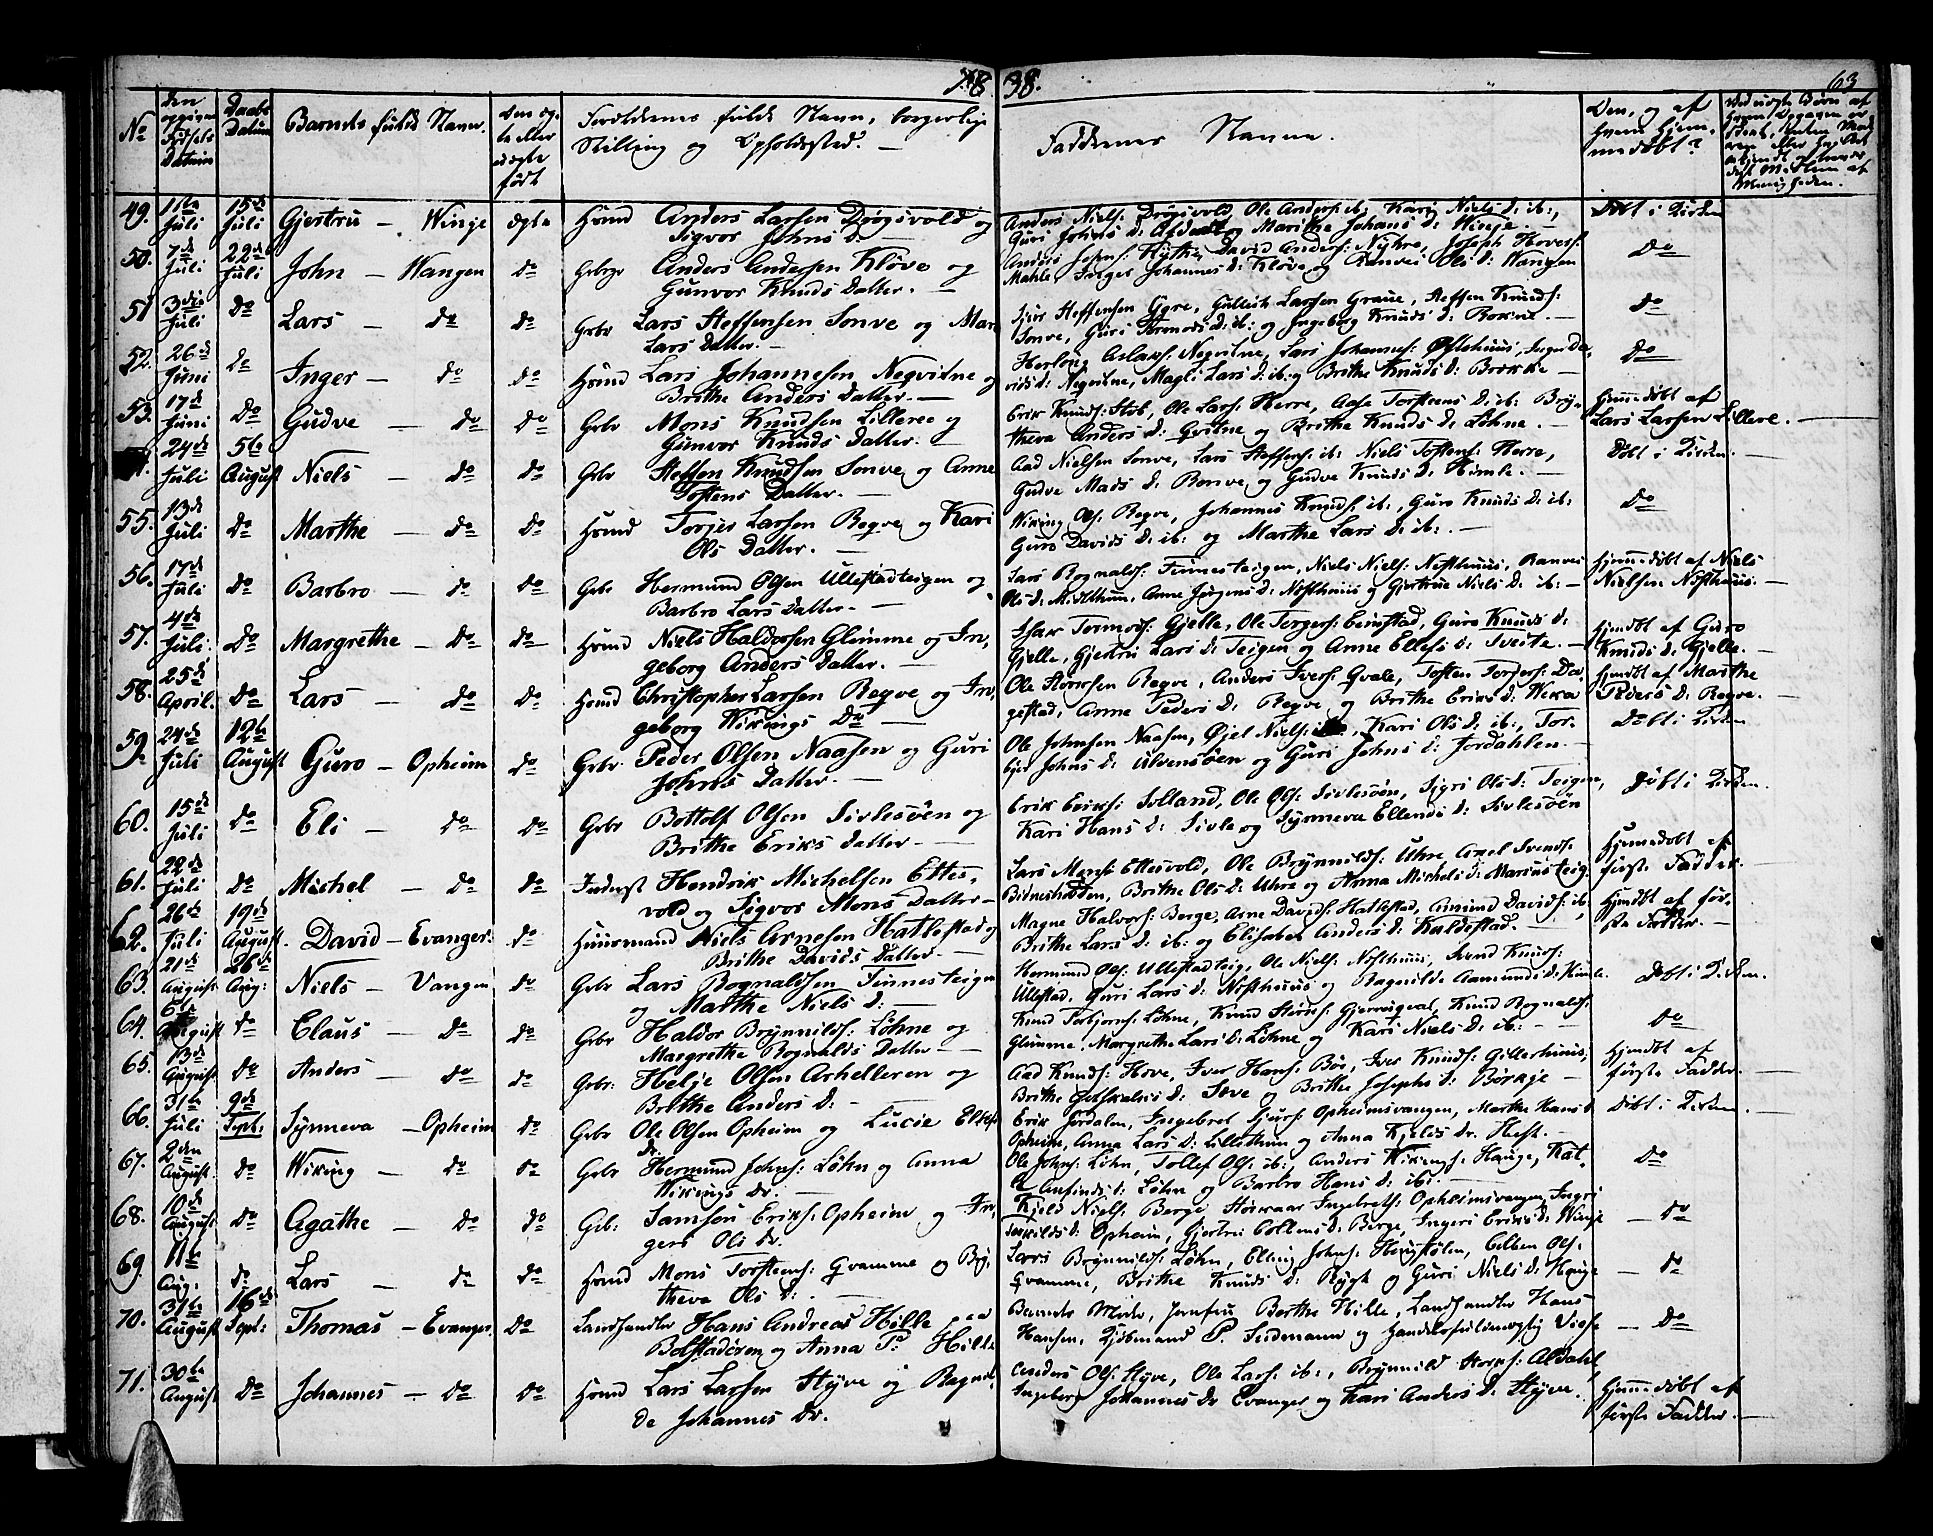 18 38. 63
No
den opgivne Fødsels Datum
Daabs Datum
Barnets fulde Navn.
Om ægte eller uægte født
Forældrenes fulde Navn, borgerlige
Stilling og Opholdssted. —
Faddernes Navne.
Om, og af hvem hjemmedøbt?
49. 11te Juli 15de Juli Gjertru — Winje ægte Huusmd Anders Larsen Drøgsvold og
Sigvor Johns D.
Anders Niels: Drøgsvold, Ole Anders: ib:, Kari Niels D: ib:,
Guri Johns D: Afdal og Marithe Johans D: Winje — Døbt i Kirken
50. 7de Juli 22de Juli John — Wangen Do Grbr Anders Andersen Kløve og
Gunvor Knuds Datter. —
Anders Johns: Kytte, David Anders: Nyhre, Joseph Hovers:
Mahle, Inger Johannes D: Kløve og Ranvei Ols D: Wangen Do
51 3die Juli Do Lars — Do Do Grbr Lars Steffensen Sonve og Mari
Lars Datter. —
Sjur Steffensen Ygre, Gulleik Larsen Graue, Steffen Knuds:
Sonve, Guri Tormods D: ib: og Ingeborg Knuds D: Rokne. — Do
52. 26de Juni Do Inger — Do Do Huusmd Lars Johannesen Neqvitne og
Brithe Anders Datter. —
Herlaug Aslaks: Neqvitne, Lars Johannes: Østehuus, Inger Da,
vids D: Neqvitne, Magli Lars D: ib: og Brithe Knuds D: Brekke — Do
53. 17de Juni Do Gudve — Do Do Grbr Mons Knudsen Lilleree og
Gunvor Knuds Datter. —
Erik Knuds: Støb, Ole Lars: Herre, Aase Torsteens D: ib: Bry,
theva Anders D: Qvitne og Brithe Knuds D: Løhne. — Hjemmedøbt af
Lars Larsen Lillere. —
24de Juli 5te August Niels — Do Do Grbr Steffen Knudsen Sonve, og Anne
Tostens Datter. —
Aad Nielsen Sonve, Lars Steffens: ib: Niels Tostens: Herre,
Gudve Mads D: Rønve, og Gudve Knuds D: Himle. — Døbt i Kirken. —
55. 13de Juli Do Marthe — Do Do Huusmd Torjer Larsen Reqve og Kari
Ols Datter. —
Wiking Ols: Reqve, Johannes Knuds: ib:, Guro Knuds D: ib:
Guro Davids D: ib: og Marthe Lars D: ib:. — Do
56. 17de Juli Do Barbro — Do Do Grbr Hermund Olsen Ullestadteigen og
Barbro Lars Datter. —
Lars Rognalds: Finnesteigen, Niels Niels: Nesthuus, Ranvei
Ols D: Midthun, Anne Jørgens D: Nesthuus og Gjertrue Niels D: ib: — Hjemmedøbt af Niels
Nielsen Nesthuus. —
57. 4de Juli. Do Margrethe — Do Do Huusmd Niels Haldorsen Glimme og In,
geborg Anders Datter. —
Isak Tormods: Gjelle, Ole Torgers: Eimstad, Guro Knuds D:
Gjelle, Gjertru Lars D: Teigen og Anne Ellefs D: Tveite. — hjmdbt af Guro
Knuds D: Gjelle. —
58. 25de April. Do Lars — Do Do Huusmd Christopher Larsen Reqve og In,
geborg Wikings Dr —
Ole Størksen Reqve, Anders Ivers: Qvale, Tosten Torgers: Da,
gestad, Anne Peders D: Reqve og Brithe Eriks D: Wikøe hjemdbt af Marthe
Peders D: Reqve.
59. 24de Juli 12te August Guro — Opheim Do Grbr Peder Olsen Naasen og Guri
Johns Datter. —
Ole Johnsen Naasen, Øjel Niels:, Kari Ols D: ib:, Tor,
bjør Johns D: Ulvensøen og Guri Johns D: Jordahlen. — Døbt i Kirken
60. 15de Juli Do Eli — Do Do Grbr Bottolf Olsen Sivlesøen og
Brithe Eriks Datter —
Erik Eriks: Solland, Ole Ols: Sivlesøen, Sigri Ols D: Teigen,
Kari Hans D: Sivle og Syrmeva Ellends D: Sivlesøen Døbt i Kirken.
61. 22de Juli Do Michel — Do Do Inderst Hendrik Michelsen Ettes,
vold og Sigvor Mons Datter —
Lars Mons: Ettesvold, Ole Brynnilds: Uhre Axel Svends:
Brithe Ols D: Uhre og Anna Michels D: Hjemmedøbt af
første Fadder.
62. 26de Juli 19de August. David — Evanger. Do Huusmand Niels Arnesen Hatlestad og
Brithe Davids Datter —
Magne Halvors: Berge, Arne Davids: Hatlestad, Amund Davids: ib,
Brithe Lars D: ib: og Elisabet Anders D: Kaldestad. — Hjmdbt af før,
ste Fadder. —
63. 21de August 26de Aug: Niels — Vangen Do Grbr Lars Rognaldsen Finnesteigen
og Marthe Niels D: —
Hermund Ols: Ullestadteig, Ole Niels: Nesthuus, Svend Knuds:
Ullestad, Guri Lars D: Nesthuus og Ragnilde Aamunds D: Himle. Døbt i Kirken.
64. 6te August Do Claus — Do Do Grbr Haldor Brynnilds: Løhne og
Margrethe Rognalds Datter —
Knud Torbjørns: Løhne, Knud Størks: Gjerraqval, Knud Rognalds:
Glimme, Margrethe Lars D: Løhne og Kari Niels D: ib: — Do
65. 13de August Do Anders — Do Do Grbr: Helje Olsen Arhelleren og
Brithe Anders D: —
Aad Knuds: Hove, Iver Hans: Bøe, Iver Knuds: Gillerhuus,
Brithe Gotskalks D: Sæve og Brithe Josephs D: Børkje — Hjemdbt af
første Fadder. —
66. 31te Juli 9de Septr: Syrmeva — Opheim Do Grbr Ole Olsen Opheim og Lucie Elsefs
dr
Erik Jordalen, Ingebret Sjurs: Opheimsvangen, Marthe Hans D
Opheim, Anna Lars D: Lillethun og Anna Kjels Dr. Hæft. — Døbt i Kirken. —
67. 2den August. Do Wiking — Do Do Grbr Hermund Johns: Løhn og Anna
Wikings Dr. —
Ole Johns: Løhn, Tollef Ols: ib:, Anders Wikings: Hauge, Kat,
le Anfinds D: Løhn og Barbro Hans D: ib: — Do
68. 10de August Do Agathe — Do Do Grb: Samson Eriks: Opheim og In,
gers Ols Dr.
Kjeld Niels: Berge Størkaar Ingebrets: Opheimsvangen, Ingri
Opheim, Gjertru D: Berge, Ingeri Eriks D: Winje — Do
69. 11te Aug: Do Lars — Do Do Huusmd Mons Torsteens: Qvamme og Bry,
theva Ols D: —
Lars Brynnilds: Løhn, Elling Johns: Haugstølen, Elben Ols:
Qvamme, Brithe Knuds D: Rygh og Guri Niels D: Hauge — Do
70. 31te August 16de Septr: Thomas — Evanger. Do Landhandler Hans Andreas Hille paa
Bolstadøren og Anna P: Hille
Barnets Moder, Jomfru Berthe Hille, Landhandler Hans
Hansen, Kjøbmand P. Sudmann og Handelsfuldmægtig Viese — Do
71. 30te August Do Johannes — Do Do Huusmd Lars Larsen Styve og Ragnil,
de Johannes Dr.
Anders Ols: Styve, Ole Lars: ib:, Brynnild Størks: Aldahl,
Ingeborg Johannes Dr Evanger og Kari Anders D: Styve. Hjemmedøbt af
første Fadder. —